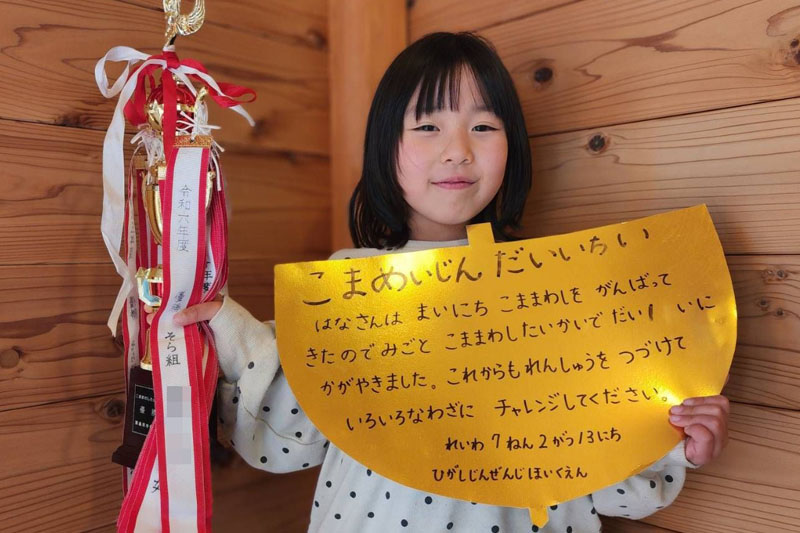 こまめいじん だいいちい
はなさんは まいにち こままわしを がんばって
きたので みごと こままわしたいかいで だい1 いに
かがやきました。これからもれんしゅうを つづけて
いろいろなわざに チャレンジしてください。
れいわ 7ねん2がつ13にち
ひがしじんぜんじほいくえん
令和六年度
優
そら組